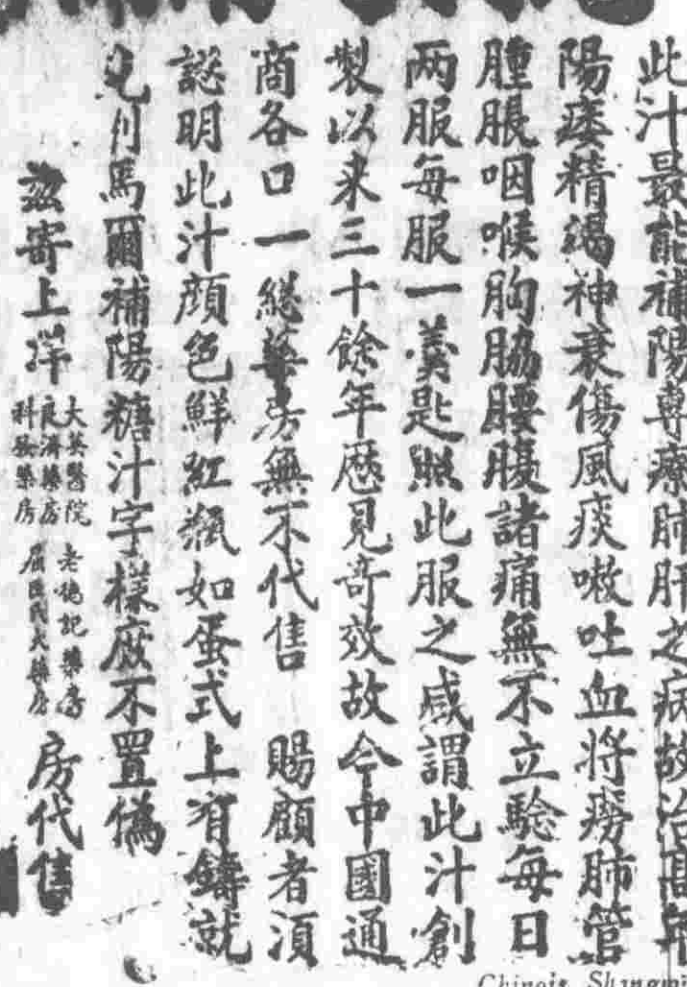 此汁最能補陽專療肺肝之病故治高年
陽痿精竭神衰傷風痰嗽吐血將癆肺管
腫脹咽喉胸脇腰腹諸痛無不立驗每日
两服每服一羹匙照此服之咸謂此汁創
製以来三十餘年歴見奇效故今中國通
商各口一總藥房無不代售 賜顧者湏
認明此汁顔色鮮紅瓶如蛋式上有鑄就
馬爾補陽糖汁字様庶不置僞
兹寄上洋
大英醫院
良濟藥房
科發藥房
老德記藥房
屈臣氏大藥房
房代售
Chinois Shung